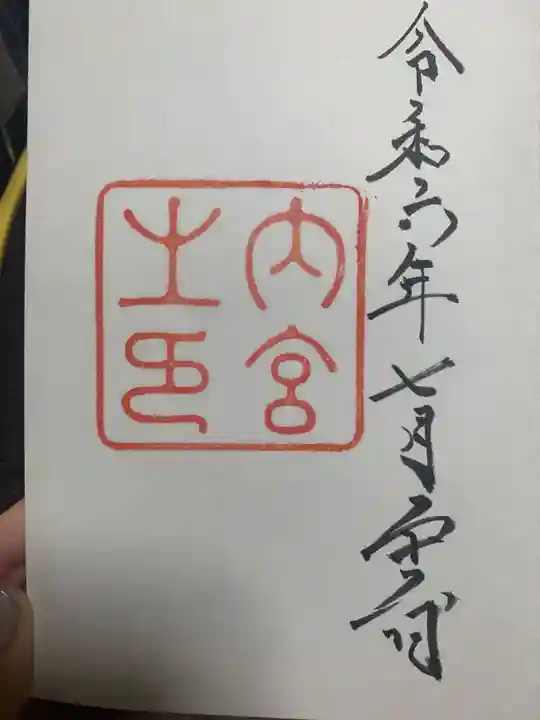 令和六年七月
内宮
之印